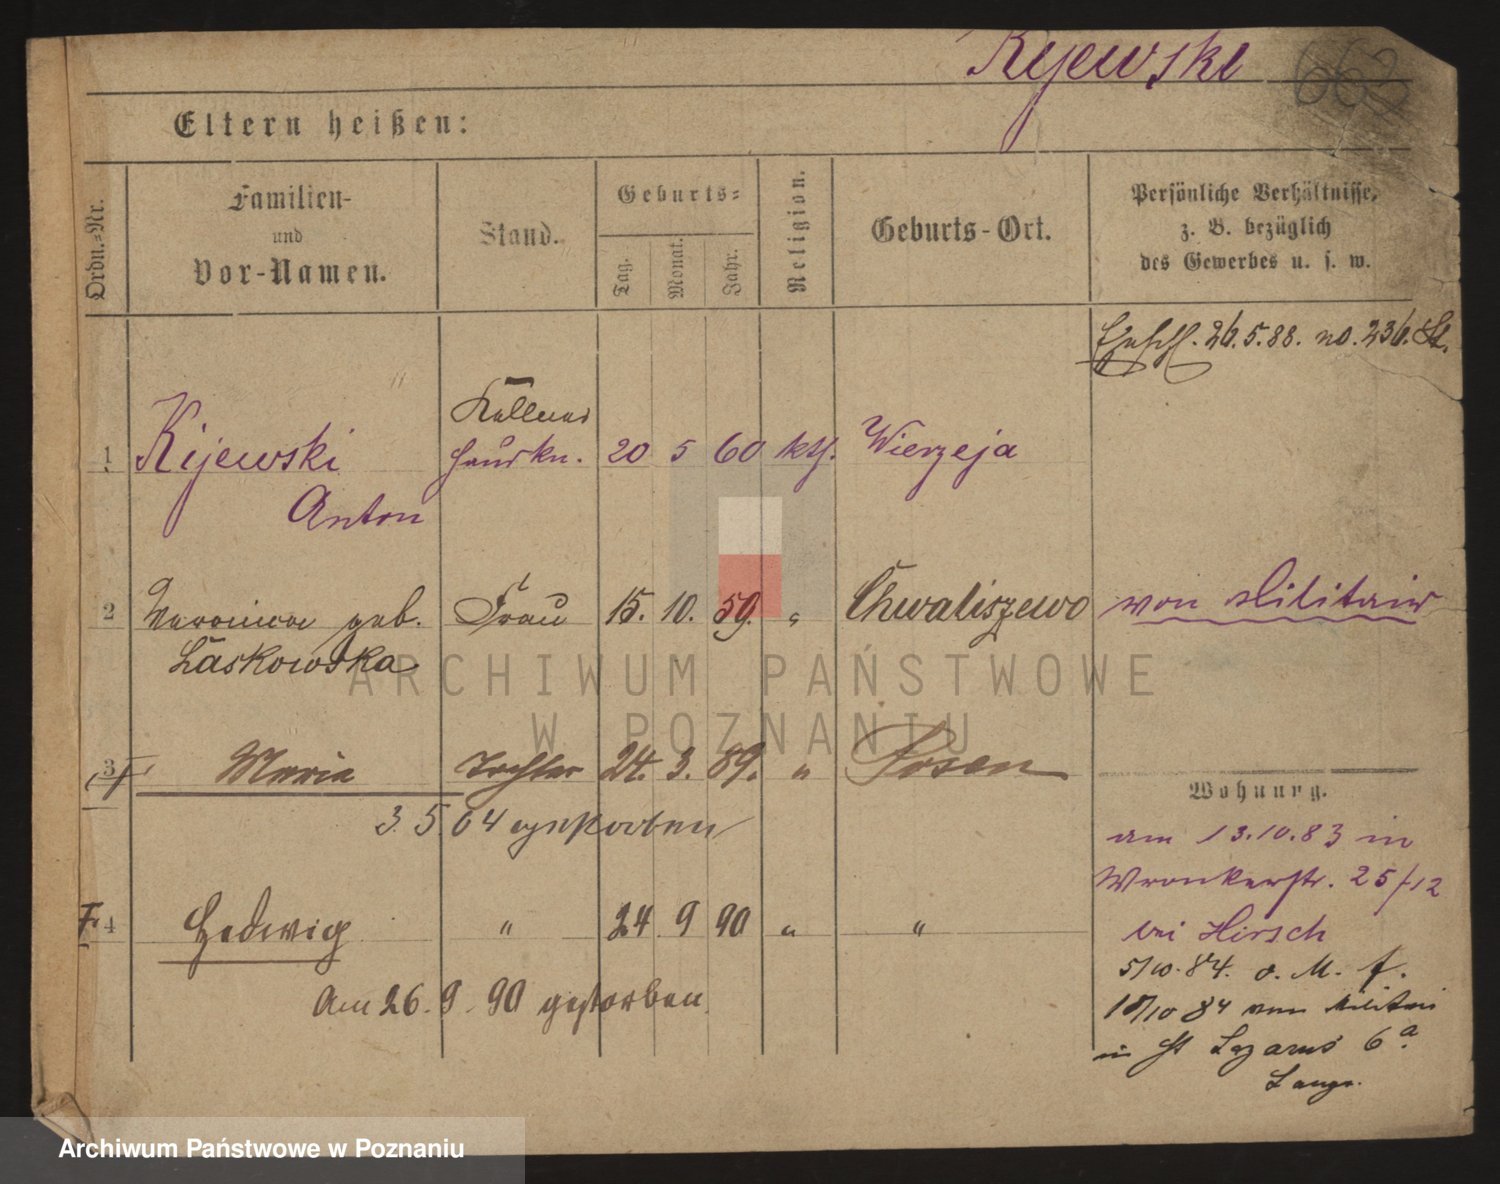 Kijewski 663
Eltern heißen:
Ordn.-Nr.
Familien-
und
Vor-Namen.
Stand.
Geburts-
Tag.
Monat.
Jahr.
Religion.
Geburts-Ort.
Persönliche Verhältnisse,
z. B. bezüglich
des Gewerbes u. s. w.
Eheschl. 26.5.88. no. 236. St.
Kellner
1 Kijewski Hauskn. 20 5 60 kth. Wierzeja
Anton
2 Veronica geb. Frau 15. 10. 59. " Chwaliszewo von Militair
Laskowska
3 Maria Tochter 24. 3. 89. " Posen
3. 5. 04 gestorben
4 Hedwig " 24 9 90 " "
Am 26. 9. 90 gestorben
Wohnung.
am 13.10.83 in
Wronkerstr. 25/12
bei Hirsch
5/10. 84. z. M. f.
18/10 84 vom Militair
in St Lazarus 6a.
Lange.
ARCHIWUM PAŃSTWOWE
W POZNANIU
Archiwum Państwowe w Poznaniu